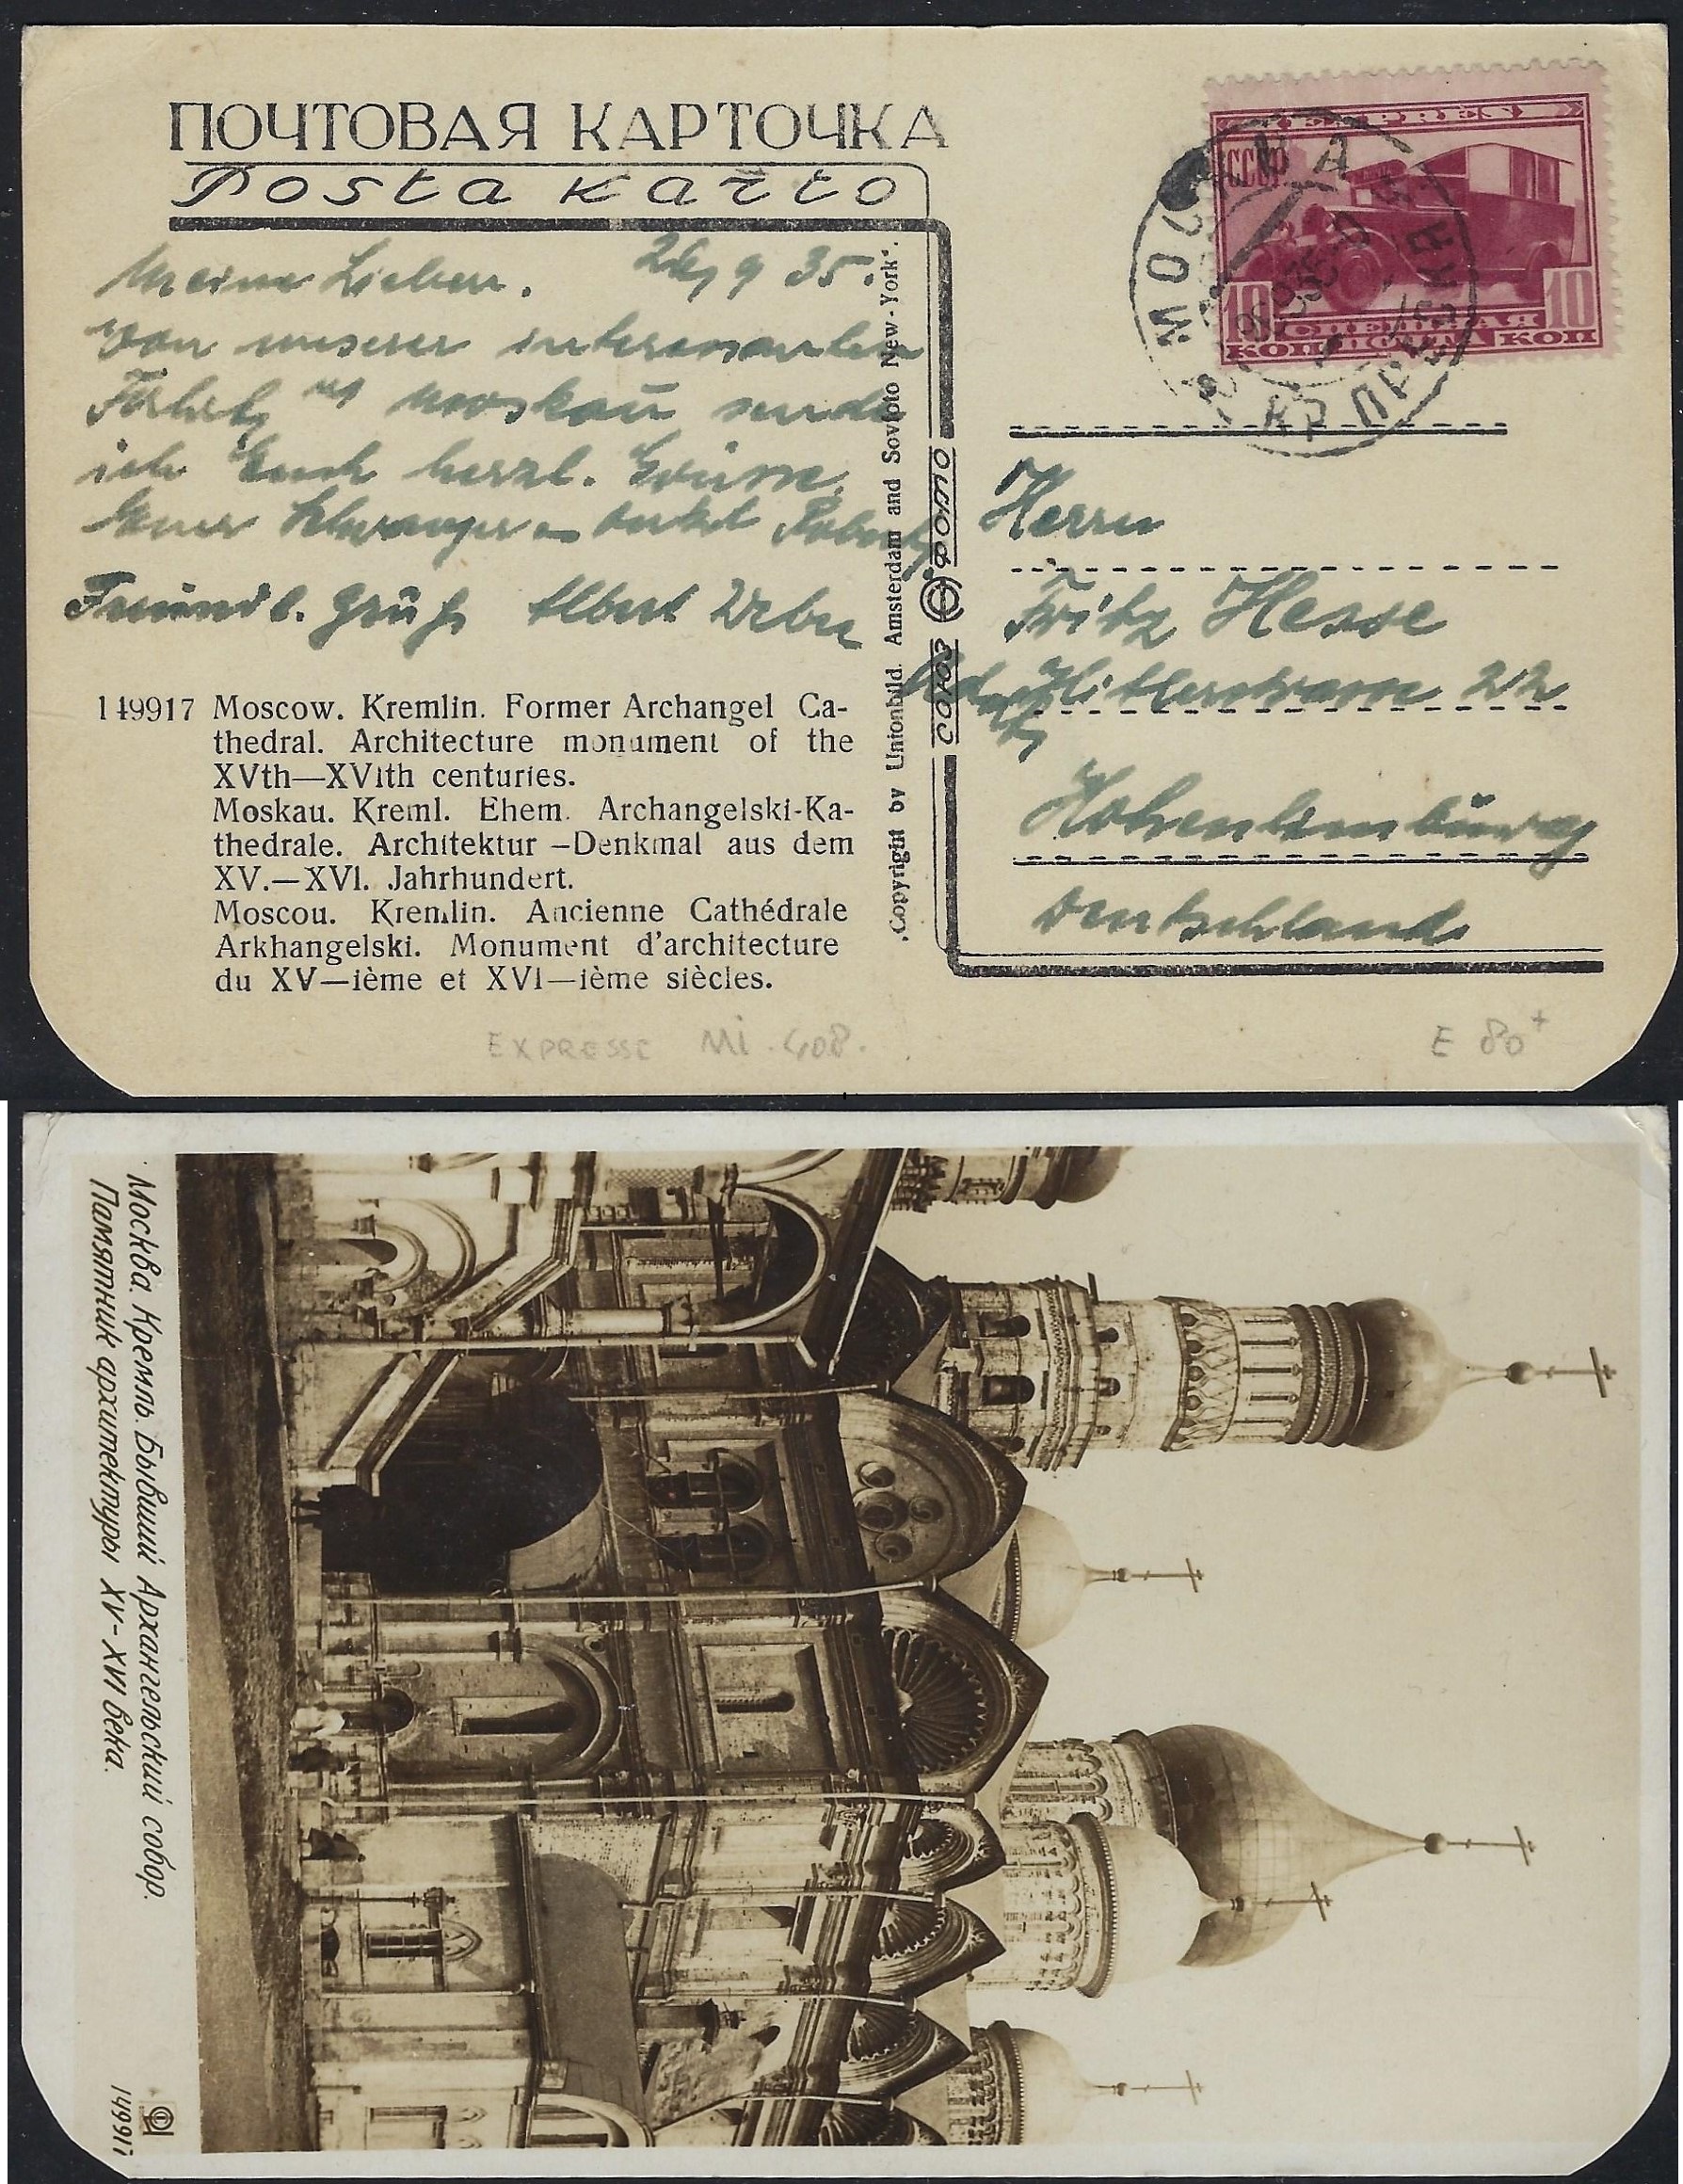 ПОЧТОВАЯ КАРТОЧКА
Posta karto
Meine Lieben. 26/9 35.
von unserer interessanten
Fahrt Moskau sende
ich Euch herzl. Grüsse.
Euer Schwager u Onkel
Freundl. Grüß Albert Weber
149917 Moscow. Kremlin. Former Archangel Ca-
thedral. Architecture monument of the
XVth—XVIth centuries.
Moskau. Kreml. Ehem. Archangelski-Ka-
thedrale. Architektur —Denkmal aus dem
XV.—XVI. Jahrhundert.
Moscou. Kremlin. Ancienne Cathédrale
Arkhangelski. Monument d'architecture
du XV—ième et XVI—ième siècles.
„Copyright by Unionbild. Amsterdam and Sovfoto New-York“.
СОЮЗ ФОТО
EXPRES
СССР
10 СПЕШНАЯ 10
КОП ПОЧТА КОП
МОСКВА
Herrn
Fritz Hesse
Hitlerstrasse 22
Hohenlimburg
Deutschland
EXPRESSE Mi. 408.
E 80+
Москва. Кремль. Бывший Архангельский собор.
Памятник архитектуры XV-XVI века.
149917